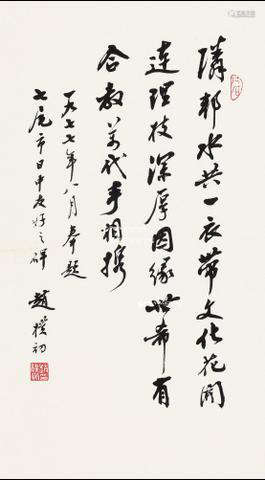 隣邦水共一衣帶文化花開
連理枝深厚因緣世希有
合教萬代手相携
一九七七年八月奉題
七尾市日中友好之碑
趙樸初